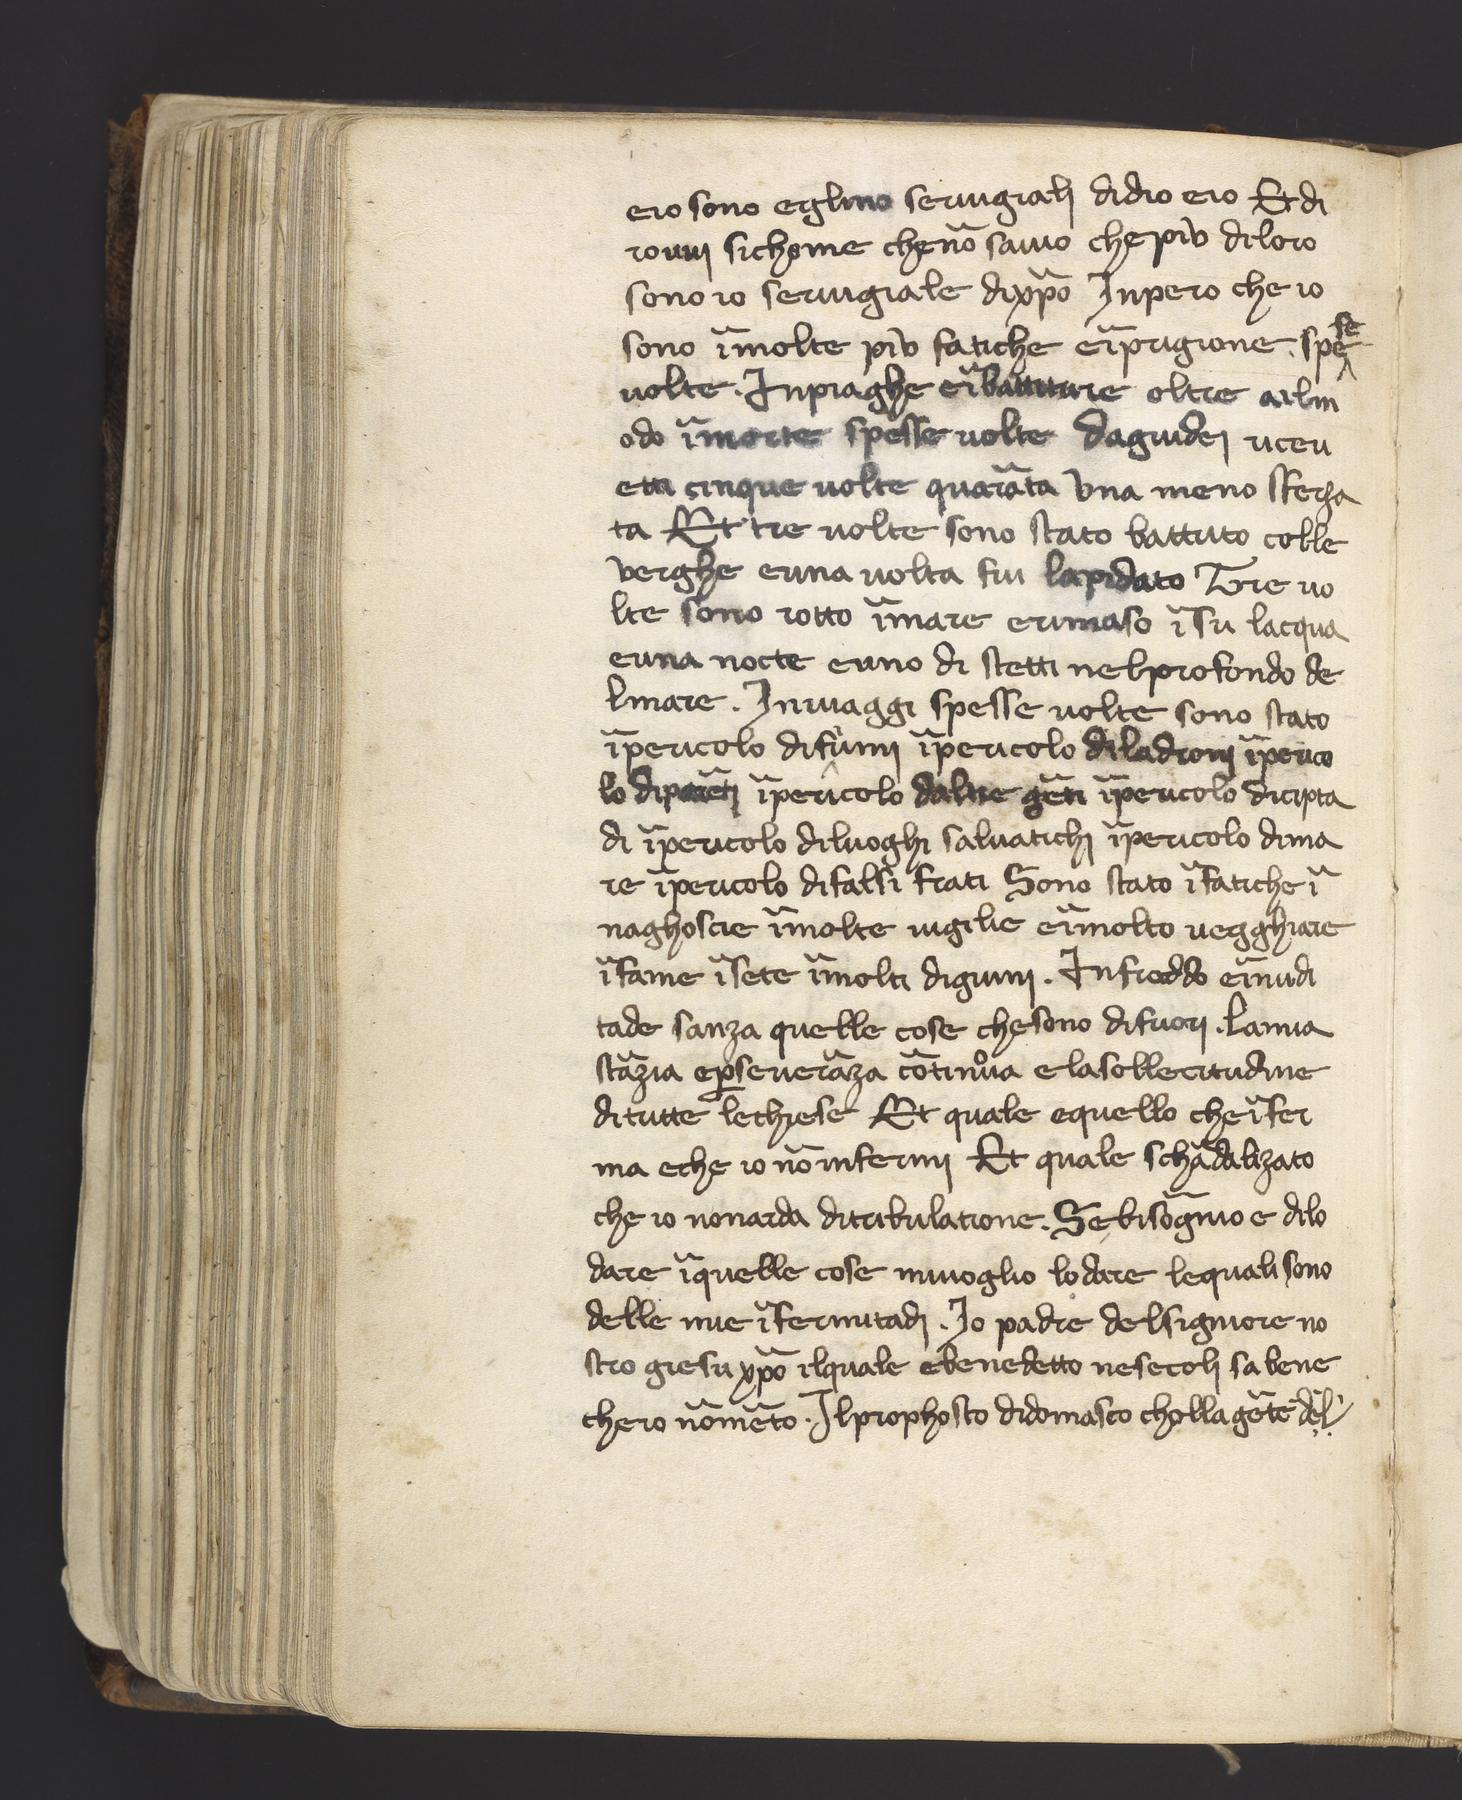 ero sono eglino seruigiali didio ero Et di
rouui sichome chenō sauio chepiù diloro
sono io seruigiale dixp̄o Inpero che io
sono ī molte più fatiche eīprigione. spesse
uolte. Inpiaghe eībattiture oltre allm
odo īmorte spesse uolte Dagiudej riceu
etti cinque uolte quarāta vna meno sferza
ta Et tre uolte sono stato battuto colle
verghe euna uolta fui lapidato Tre uo
lte sono rotto īmare erimaso īsu lacqua
euna nocte euno di stetti nelprofondo de
lmare. Inuiaggi spesse uolte sono stato
īpericolo difiumi īpericolo diladronj īperico
lo diparētj īpericolo dalne gēti īpericolo dicipta
di īpericolo diluoghi saluatichj īpericolo dima
re īpericolo difalsi frati Sono stato īfatiche ī
naghoscie īmolte uigilie eīmolto uegghiare
īfame īsete īmolti digiuni. Infreddo eīnudi
tade sanza quelle cose chesono difuorj. Lamia
stāzia eꝑseuerāza cōtinoua elasollecitudine
ditutte lechiese Et quale equello cheīfer
ma eche io nō infermj Et quale schādalizato
che io nonarda ditribulatione. Se bisōgnio e dilo
dare īquelle cose mivoglio lodare lequali sono
delle mie īfermitadj. Io padre delsigniore no
stro giesu xp̄o ilquale ebenedetto nesecolj sa bene
cheio nōmēto. Ilprophosto didomasco chollagēte del